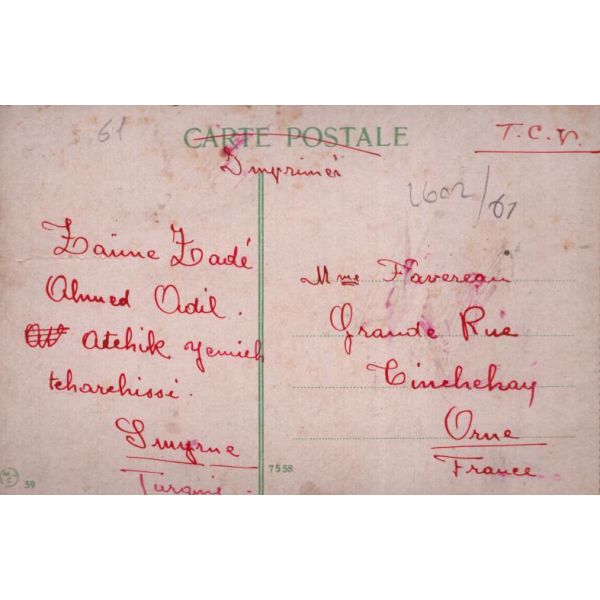 61
CARTE POSTALE
T.C.V.
Imprimés
2602/61
Zaïme Zadé
Ahmed Adil.
Atchik yemich
tcharchissi.
Smyrne
Turquie.
Mme Favereau
Grande Rue
Tinchebray
Orne
France
7558
59